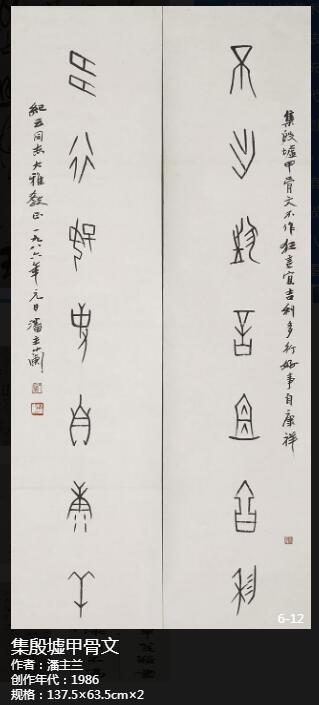 集殷墟甲骨文不作狂言宜吉利多行好事自康祥
不作狂言宜吉利
多行好事自康祥
纪云同志大雅教正一九八六年元日潘主兰
6-12
集殷墟甲骨文
作者：潘主兰
创作年代：1986
规格：137.5×63.5cm×2